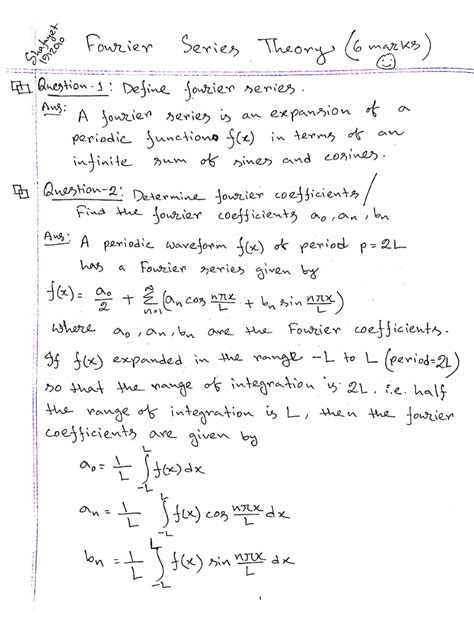 Shafayet
10/2010
Fourier Series Theory (6 marks)
Question-1: Define fourier series.
Ans: A fourier series is an expansion of a
periodic function f(x) in terms of an
infinite sum of sines and cosines.
Question-2: Determine fourier coefficients/
Find the fourier coefficients a₀, aₙ, bₙ
Ans: A periodic waveform f(x) of period p=2L
has a Fourier series given by
f(x) = a₀/2 + Σ_{n=1}^{∞} (aₙ cos nπx/L + bₙ sin nπx/L)
where a₀, aₙ, bₙ are the Fourier coefficients.
If f(x) expanded in the range -L to L (period=2L)
so that the range of integration is 2L, i.e. half
the range of integration is L, then the fourier
coefficients are given by
a₀ = 1/L ∫_{-L}^{L} f(x) dx
aₙ = 1/L ∫_{-L}^{L} f(x) cos nπx/L dx
bₙ = 1/L ∫_{-L}^{L} f(x) sin nπx/L dx